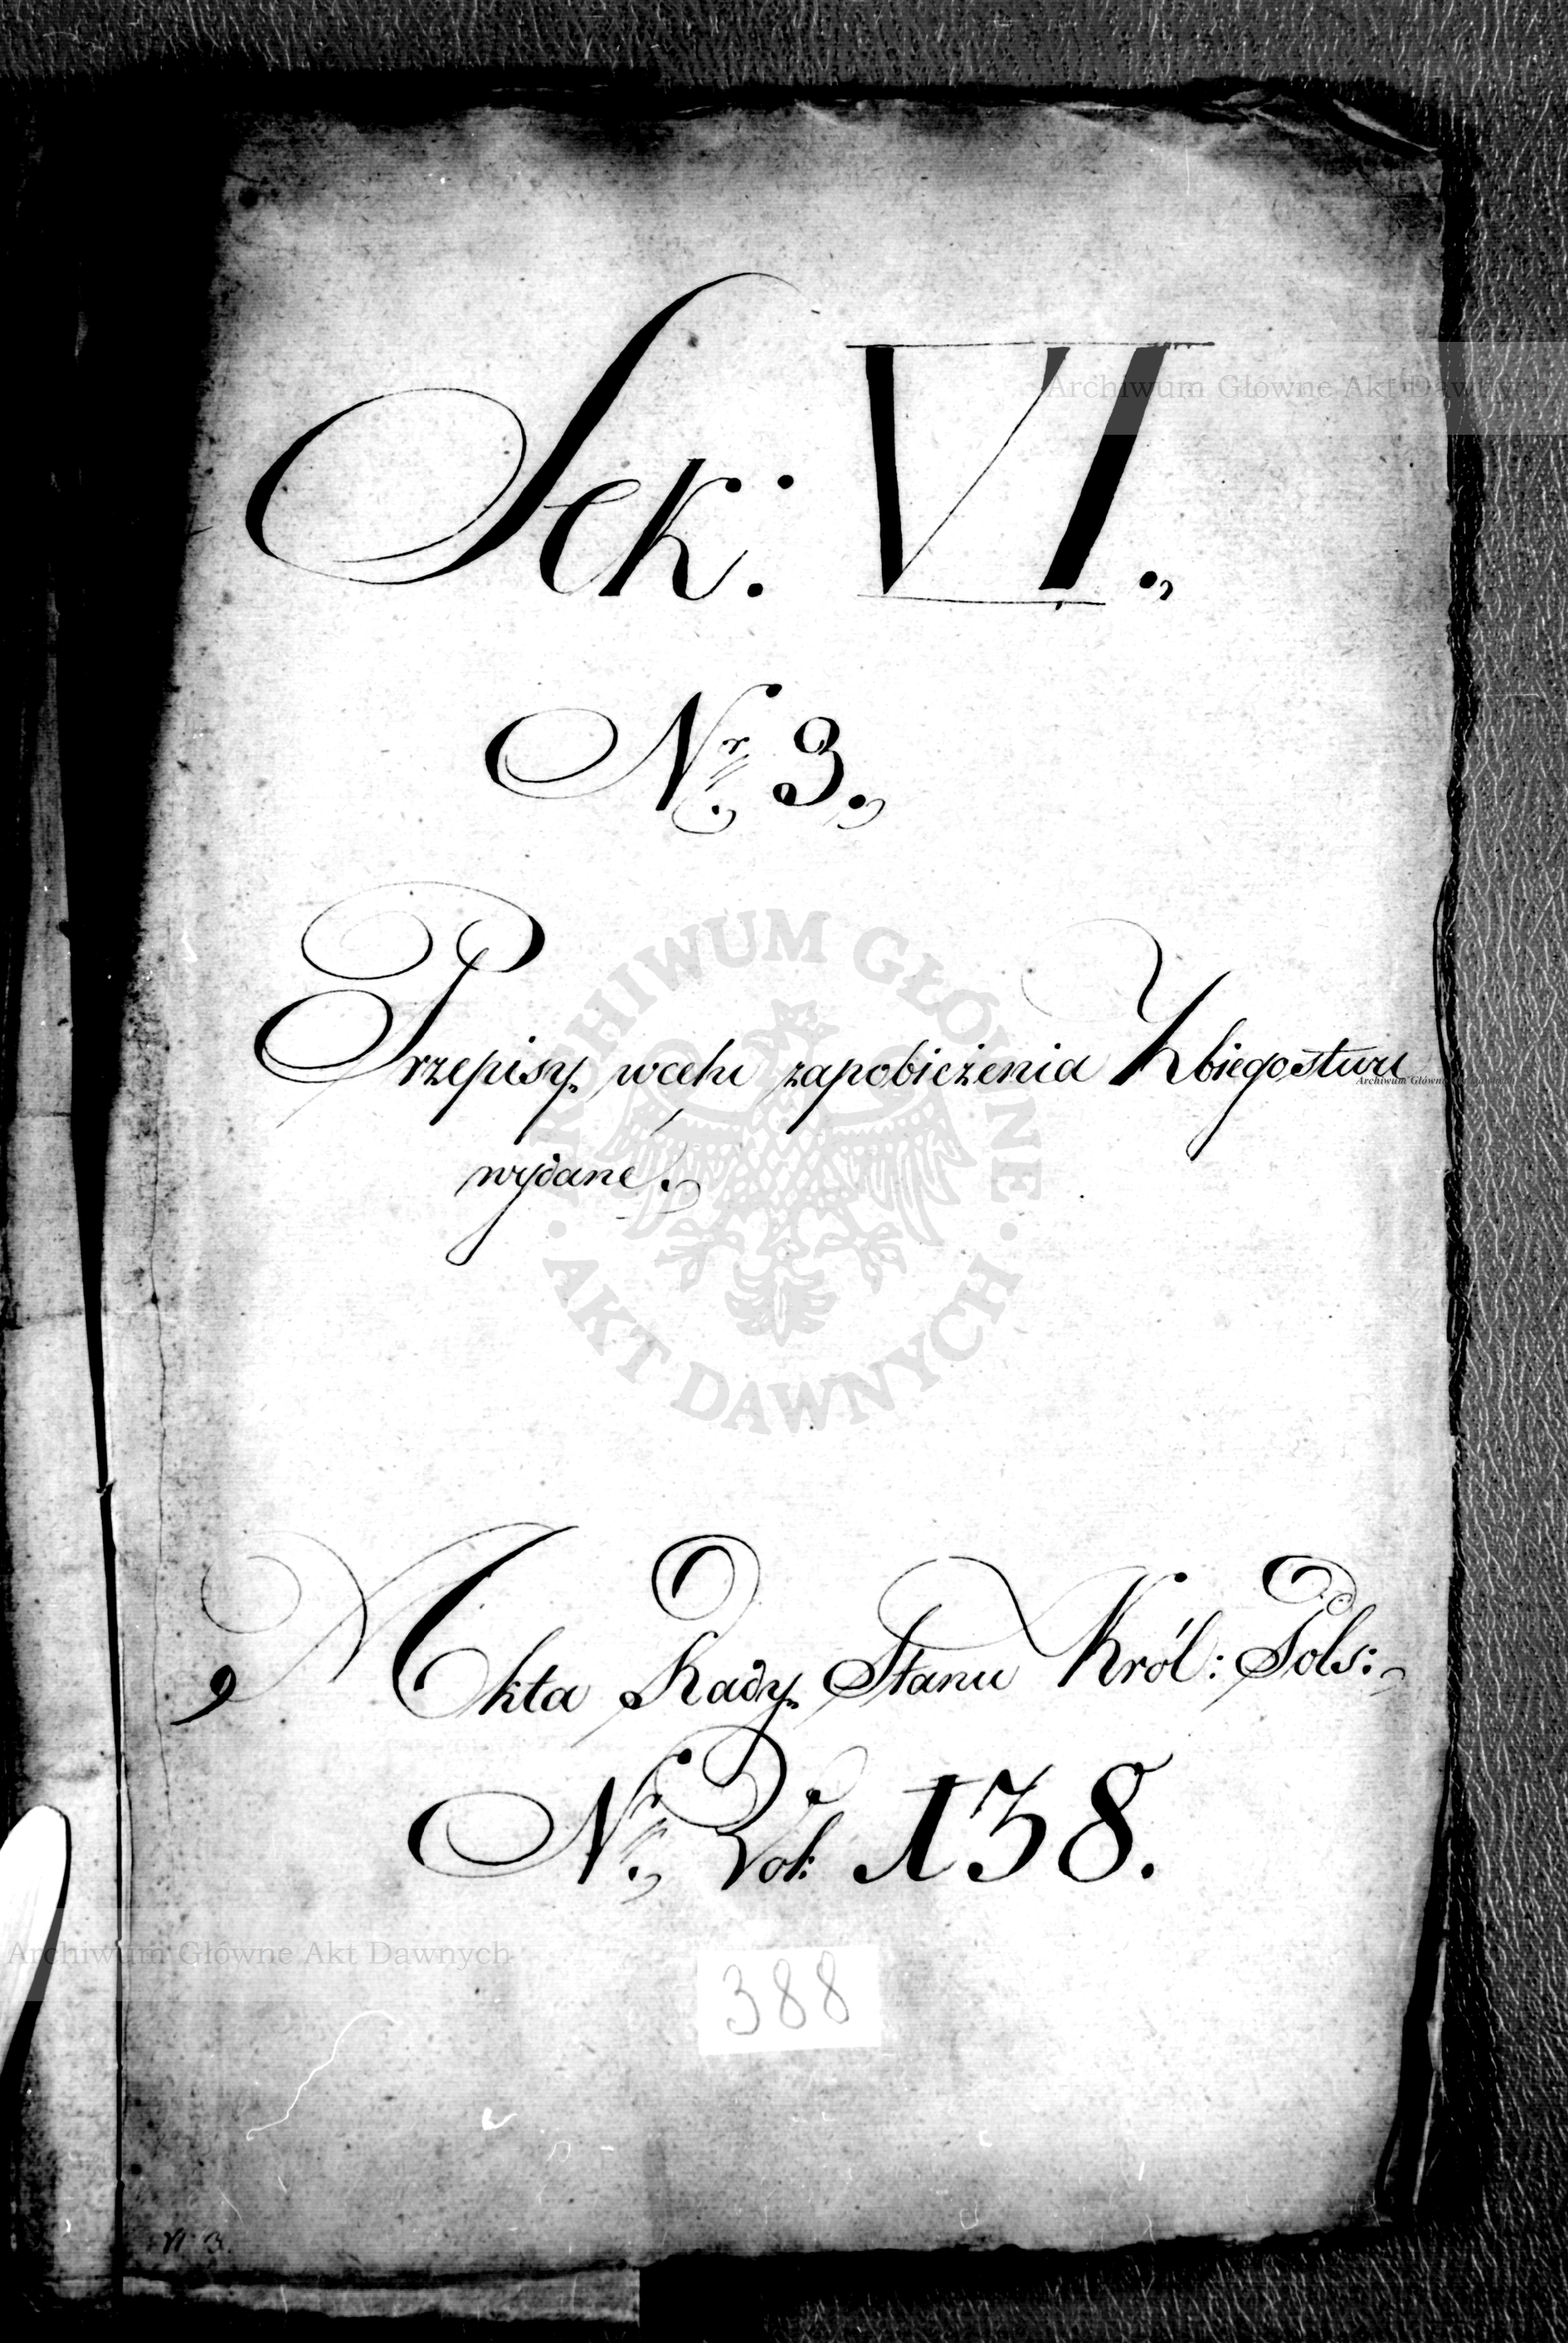 Sek: VI.,
Nr. 3.,
Przepisy wcelu zapobieżenia Zbiegostwu
wydane.,
Akta Rady Stanu Król: Pols:
Nr., Vol: 138.
388
N 3.
ARCHIWUM GŁÓWNE
· AKT DAWNYCH ·
Archiwum Główne Akt Dawnych
Archiwum Główne Akt Dawnych